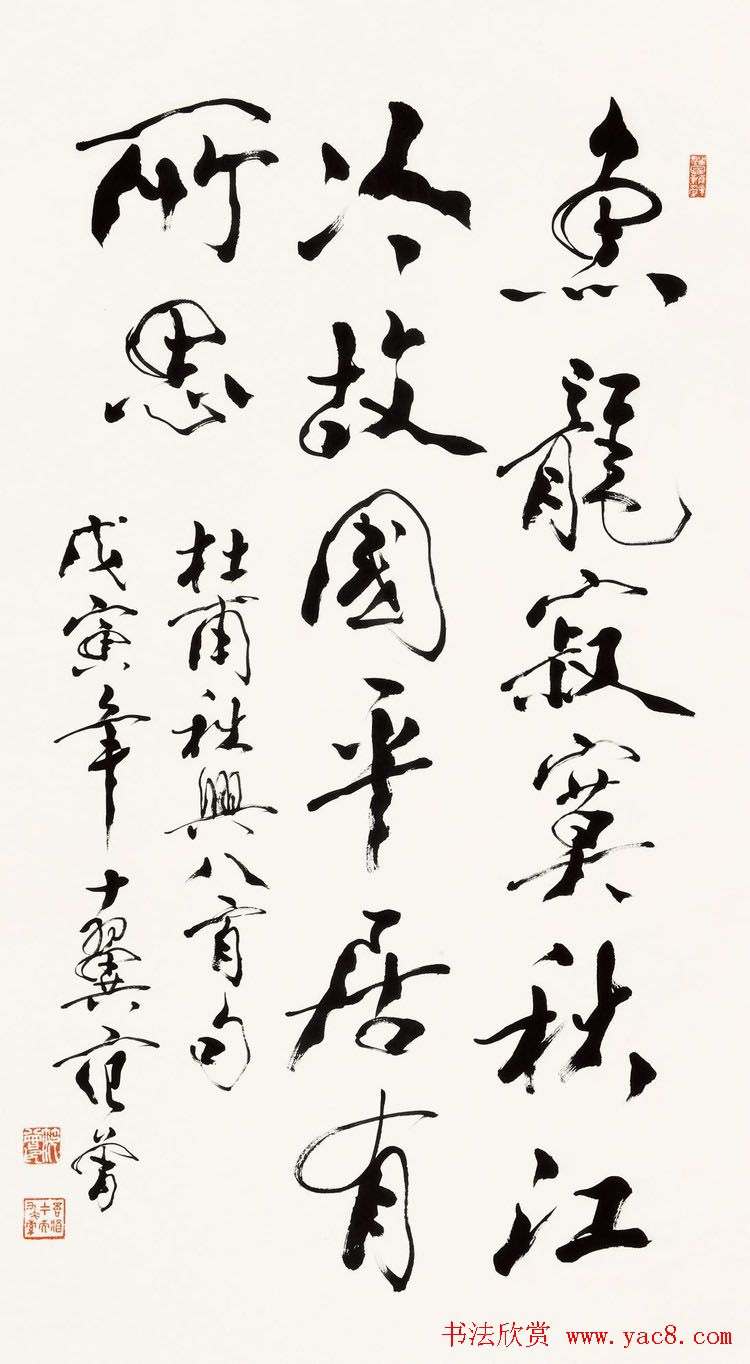 魚龍寂寞秋江
冷故國平居有
所思
杜甫秋興八首句
戊寅年十翼范曾
书法欣赏 www.yac8.com